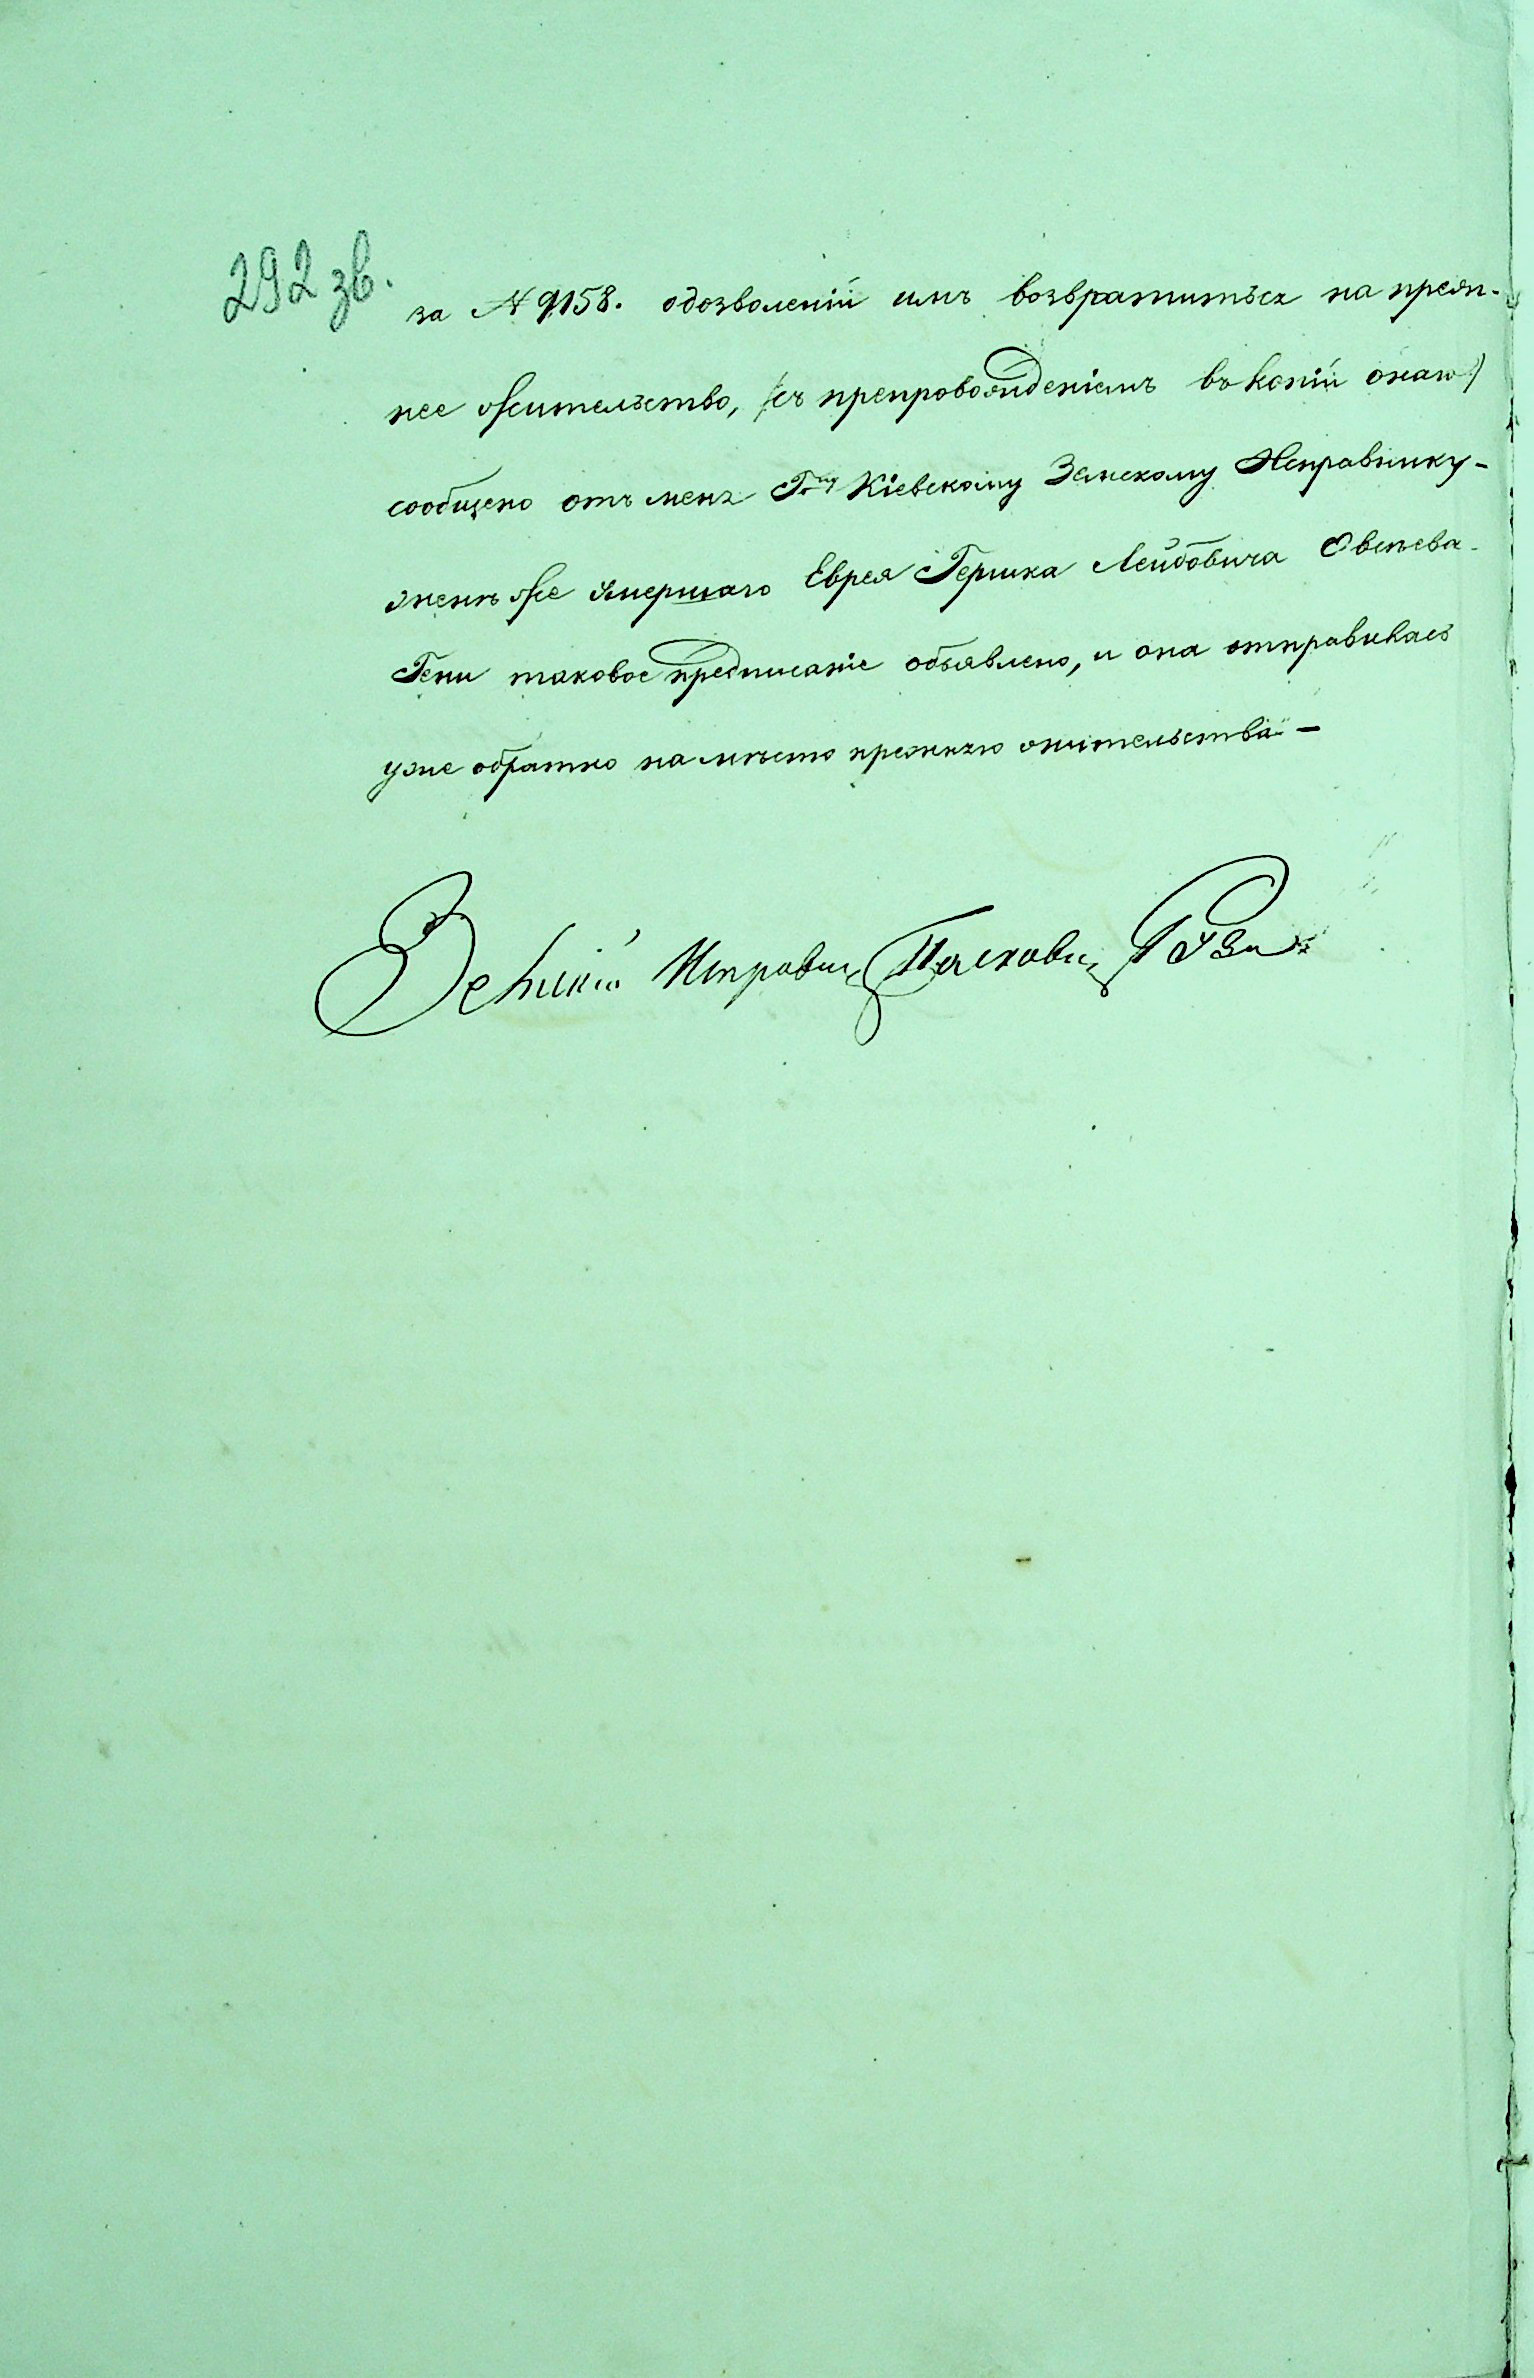 292 зв.
за № 9158. одозволеніи имъ возвратиться на преж-
нее жительство, /съ препровожденіемъ въ копіи онаго/
сообщено отъ меня Г-ну Кіевскому Земскому Исправнику -
женѣ же умершаго Еврея Гершка Лейбовича
Гени таковое предписаніе объявлено, и она отправилась
уже обратно на мѣсто прежняго жительства —
Земскій Исправни